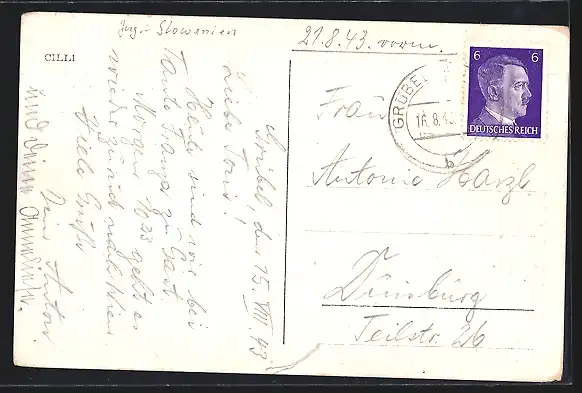 Jug.- Slowenien
CILLI
Grübel, den 15. VIII. 43
Liebe Toni!
Heute sind wir bei
Tante Franza zu Gast.
Morgen 10 23 geht es
wieder zurück nach Wien.
Viele Grüße
Dein Anton
und Deine
21.8.43. vorm.
GRÜBE
16.8.43
6 6
DEUTSCHES REICH
Frau
Antonie Harzl
Duisburg
Teilstr. 26